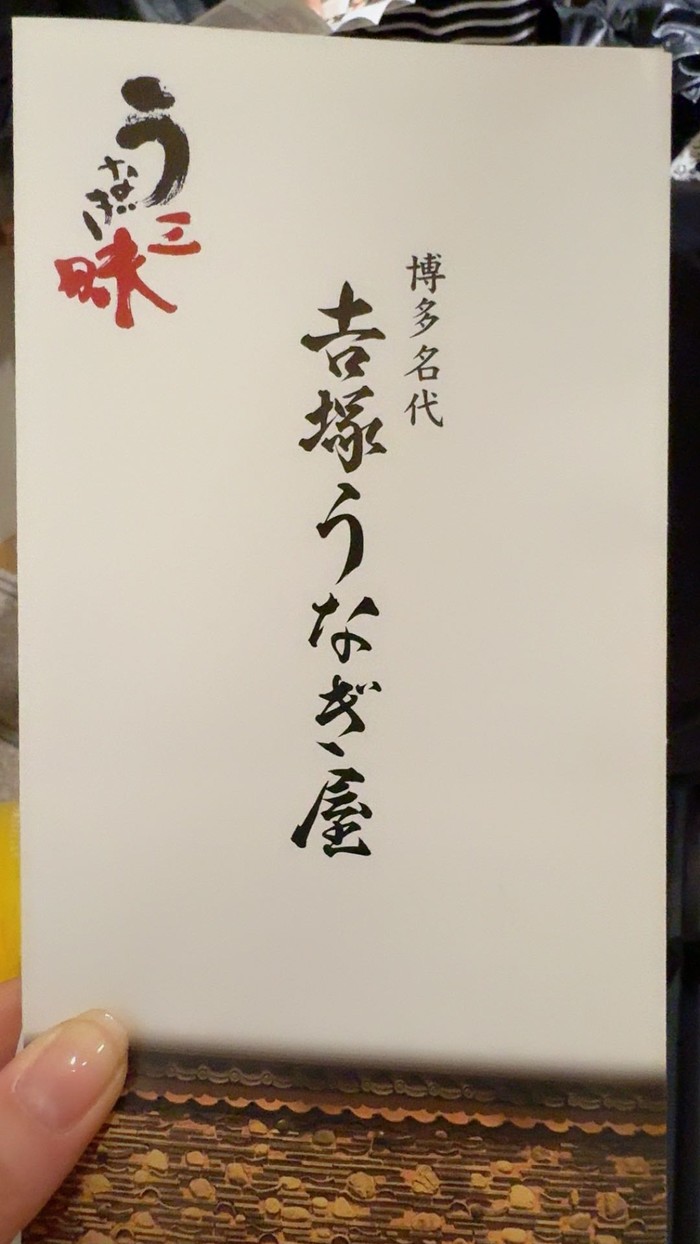 博多名代
𠮷塚うなぎ屋
うなぎ
三昧